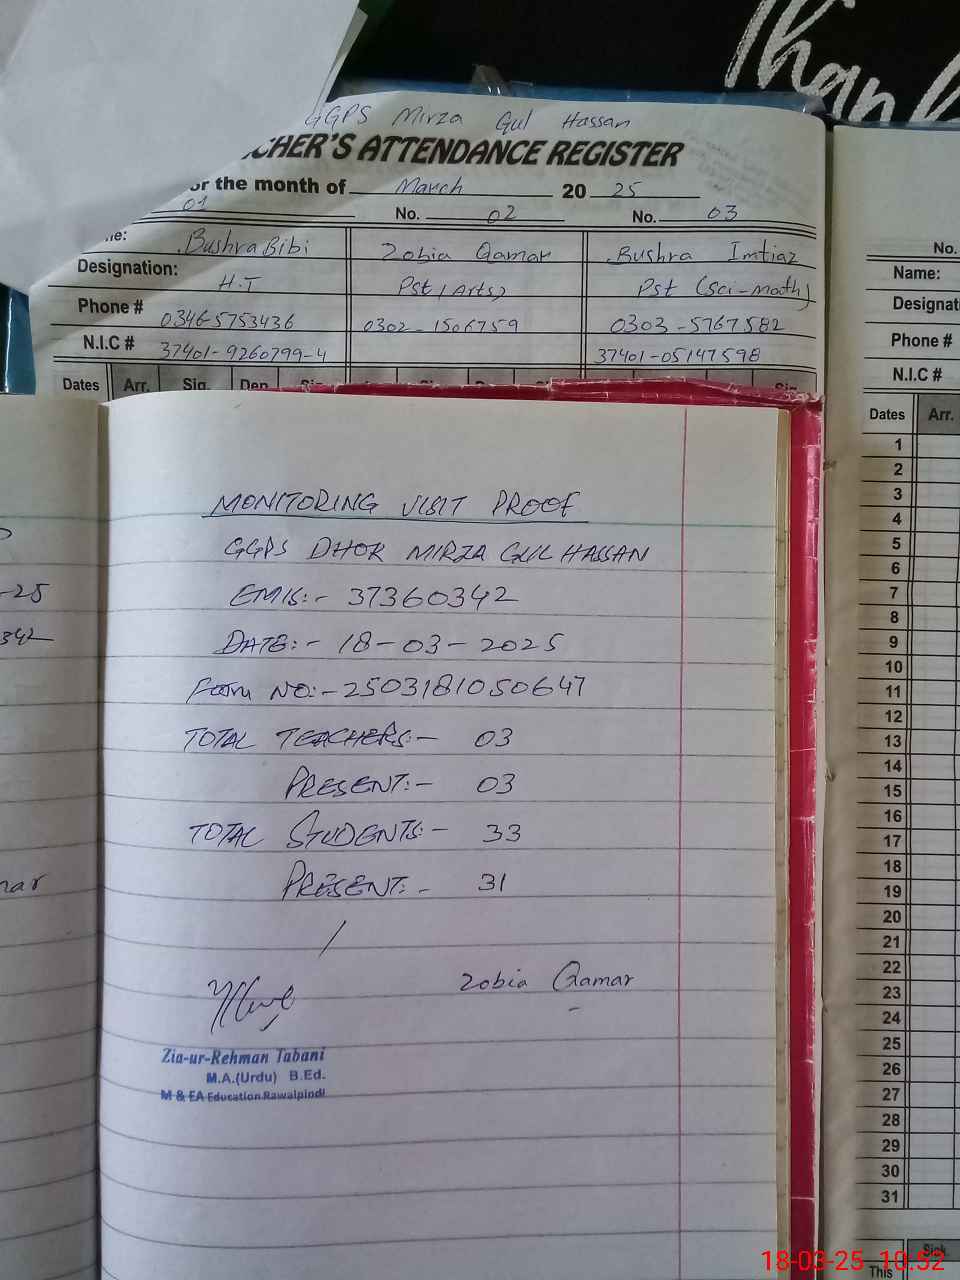 Than
GGPS Mirza Gul Hassan
CHER'S ATTENDANCE REGISTER
or the month of March 20 25
01 No. 02 No. 03
ne: Bushra Bibi Zobia Qamar Bushra Imtiaz
Designation: H.T Pst (Arts) Pst (Sci-math)
Phone # 0346-5753436 0302-1506759 0303-5767582
N.I.C # 37401-9260799-4 37401-05147598
Dates Arr. Sig. Dep. Sig.
MONITORING VISIT PROOF
GGPS DHOK MIRZA GUL HASSAN
EMIS:- 37360342
DATE:- 18-03-2025
Form NO:- 2503181050647
TOTAL TEACHERS:- 03
PRESENT:- 03
TOTAL STUDENTS:- 33
PRESENT:- 31
Zobia Qamar
Zia-ur-Rehman Tabani
M.A.(Urdu) B.Ed.
M & EA Education Rawalpindi
-25
342
mar
No.
Name:
Designati
Phone #
N.I.C #
Dates Arr.
1
2
3
4
5
6
7
8
9
10
11
12
13
14
15
16
17
18
19
20
21
22
23
24
25
26
27
28
29
30
31
Sick
This
18-03-25 10:52